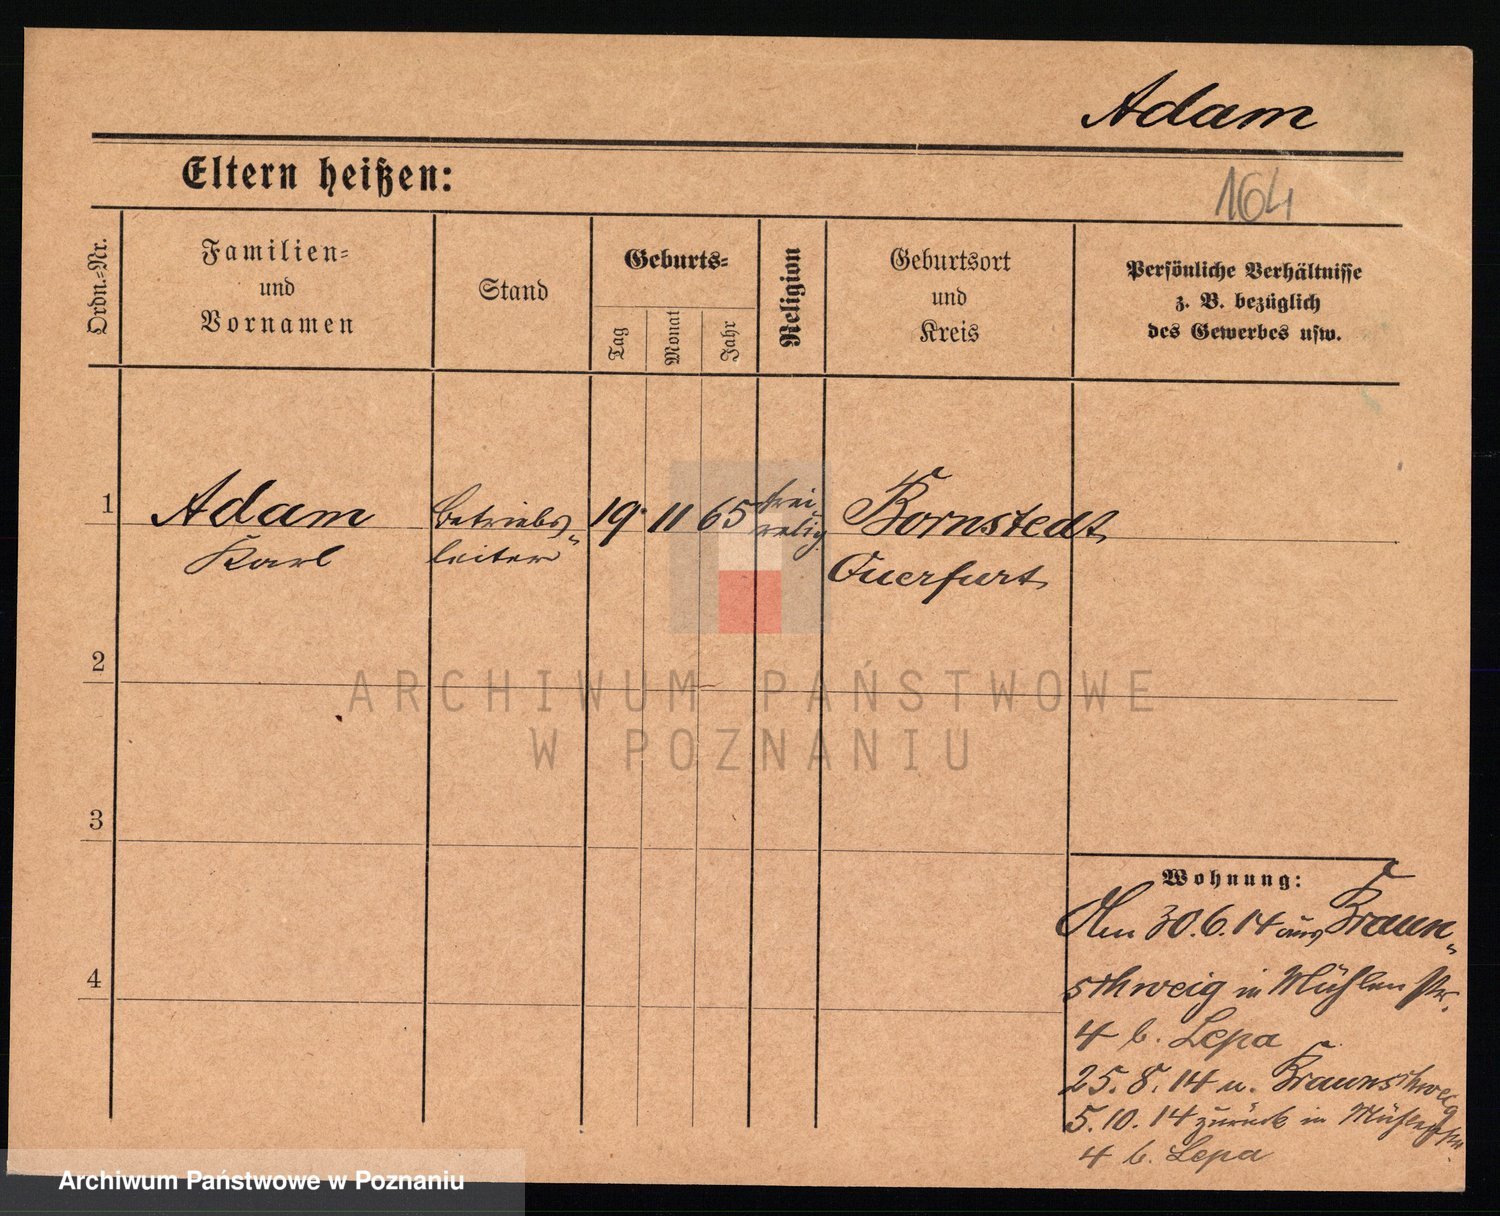 Adam
164
Eltern heißen:
Ordn.-Nr.
Familien-
und
Vornamen
Stand
Geburts-
Tag
Monat
Jahr
Religion
Geburtsort
und
Kreis
Persönliche Verhältnisse
z. B. bezüglich
des Gewerbes usw.
1
Adam
Karl
Betriebs-
leiter
19. 11 65
frei
relig.
Bornstedt
Querfurt
2
3
4
Wohnung:
30.6.14 aus Braun-
schweig in Mühlenstr.
4 b. Lepa
25.8.14 n. Braunschweig
5.10.14 zurück in Mühlenstr.
4 b. Lepa
ARCHIWUM PAŃSTWOWE
W POZNANIU
Archiwum Państwowe w Poznaniu